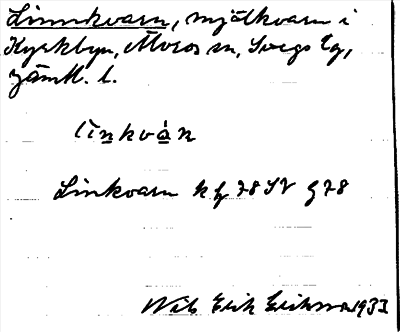 Linnkvarn, mjölkvarn i
Kyrkbyn, Älvros sn, Svegs tg,
Jämtl. l.
līnkvàn
Linkvarn k bl 78 SV g 78
Nils Erik Eriksson 1933